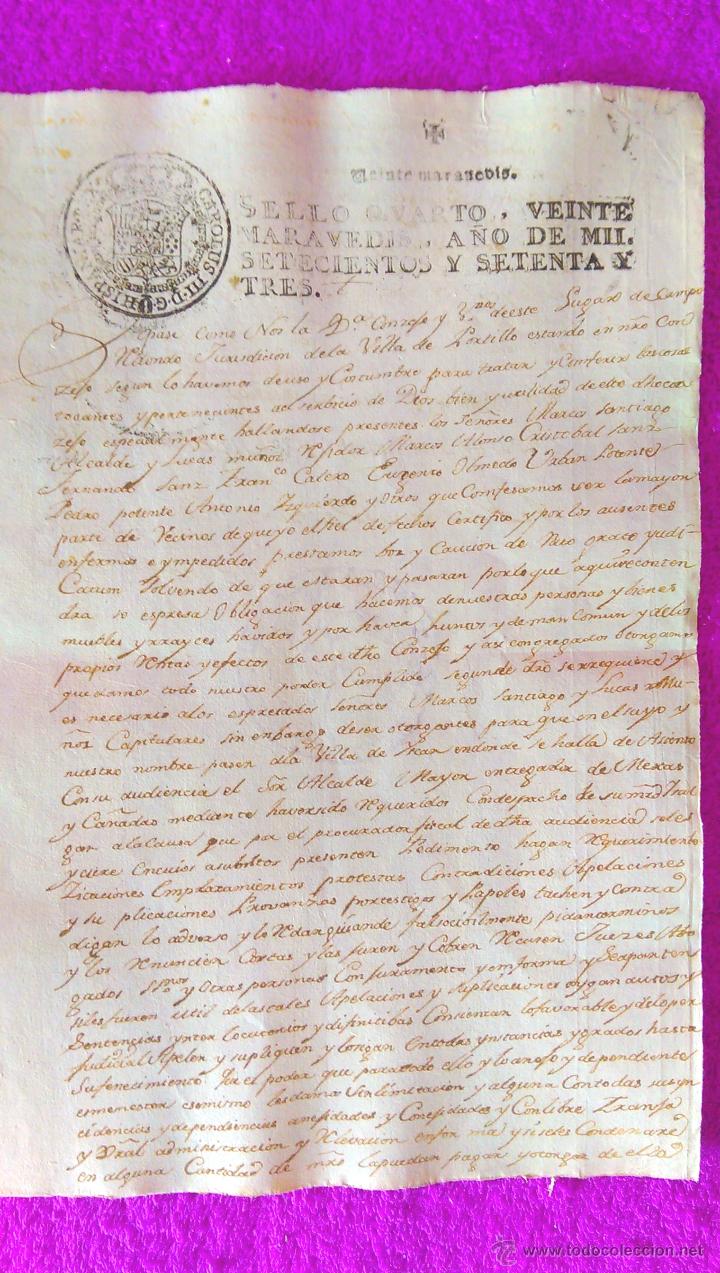 Veinte maravedis.
SELLO QVARTO, VEINTE
MARAVEDIS, AÑO DE MIL
SETECIENTOS Y SETENTA Y
TRES.
CAROLUS III D G HISPANIAR
Sepase como Nos la Jª Conzejo y Vnos de este Lugar de Campo
Redondo Jurisdicion de la Villa de Portillo estando en nro Con
zejo segun lo havemos de uso y Costumbre para tratar y Conferir las cosas
tocantes y pertenecientes al serbicio de Dios bien y utilidad de dho Con
zejo espezialmente hallandose presentes los Señores Marcos Santiago
Alcalde y Lucas Muñoz Rejidor Marcos Alonso Cristobal Sanz
Fernando Sanz Franco Calero Eugenio Olmedo Urban Potente
Pedro potente Antonio Izquierdo y Otros que Comfesamos ser la mayor
parte de Vecinos de que yo el fiel de fechos Certifico y por los ausentes
enfermos e ympedidos prestamos boz y Caucion de Rato grato yudi
Catum Solvendo de que estaran y pasaran por lo que aqui se conten
dra so espresa Obligacion que hacemos de nuestras personas y bienes
muebles y rrayces havidos y por haver juntos y de man Comun y de los
propios Rentas y efectos de este dho Conzejo y asi congregados otorgam
que damos todo nuestro poder Cumplido segun de dro se rrequiere y
es necesario a los espresados señores Marcos Santiago y Lucas Mu
ñoz Capitulares sin enbargo de ser otorgantes para que en el suyo y
nuestro nombre pasen a la Villa de en donde se halla de Asiento
Con su audiencia el Sor Alcalde Mayor entregador de Mestas
y Cañadas mediante haver sido Requeridos Con despacho de su mrd
a la Causa que por el procurador fiscal de dha audiencia se les
y presenten Pedimento hagan Requerimiento
Zitaciones Emplazamientos protestas Contradiciones Apelaciones
y Suplicaciones Provanzas por testigos y Papeles tachen y Contra
digan lo adverso y lo pidan terminos
y los Renuncien Costas y las juren y Cobren Recusen Juezes Abo
gados ssnos y Otras personas Con juramento y en forma y se aparten
si les fuere util de las tales Apelaciones y Suplicaciones oygan autos y
Sentencias ynter locutorios y difinitibas Consientan lo faborable y de lo per
judicial Apelen y supliquen y lo sigan en todas ynstancias y grados hasta
su fenecimiento Pa el poder que para todo ello y lo anejo y dependiente
es menester ese mismo les damos sin limitacion alguna Con todas sus yn
cidencias y dependiencias anesidades y Conesidades y Con libre Franca
y Gral administracion y Relebacion en forma y si se les Condenare
en alguna Cantidad de mrs la puedan pagar y otorgar de ello
www.todocoleccion.net